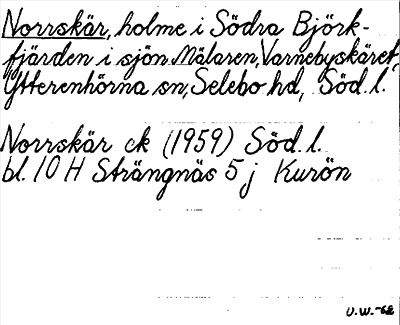 Norrskär, holme i Södra Björk-
fjärden i sjön Mälaren, Varnebyskäret
Ytterenhörna sn, Selebo hd, Söd. l.
Norrskär ek (1959) Söd. l.
bl. 10 H Strängnäs 5 j Kurön
U.W.-62